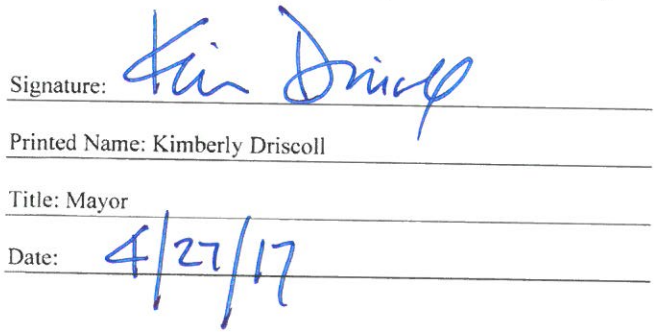 Signature: Kim Driscoll
Printed Name: Kimberly Driscoll
Title: Mayor
Date: 4/27/17